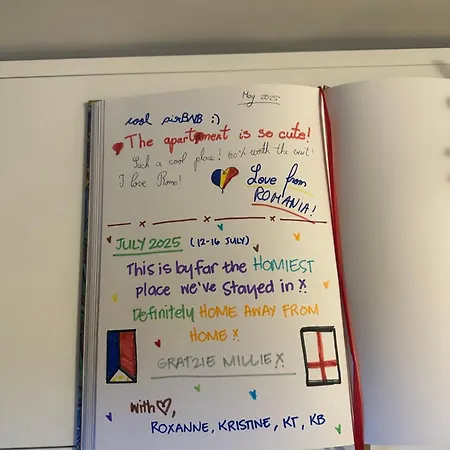 May 2025
cool airBNB :)
The apartement is so cute!
Such a cool place! 100% worth the visit!
I love Rome!
Love from
ROMANIA!
JULY 2025 (12-16 JULY)
This is by far the HOMIEST
place we've stayed in x
Definitely HOME AWAY FROM
HOME x
GRATZIE MILLIE x
with ♡,
ROXANNE, KRISTINE, KT, KB